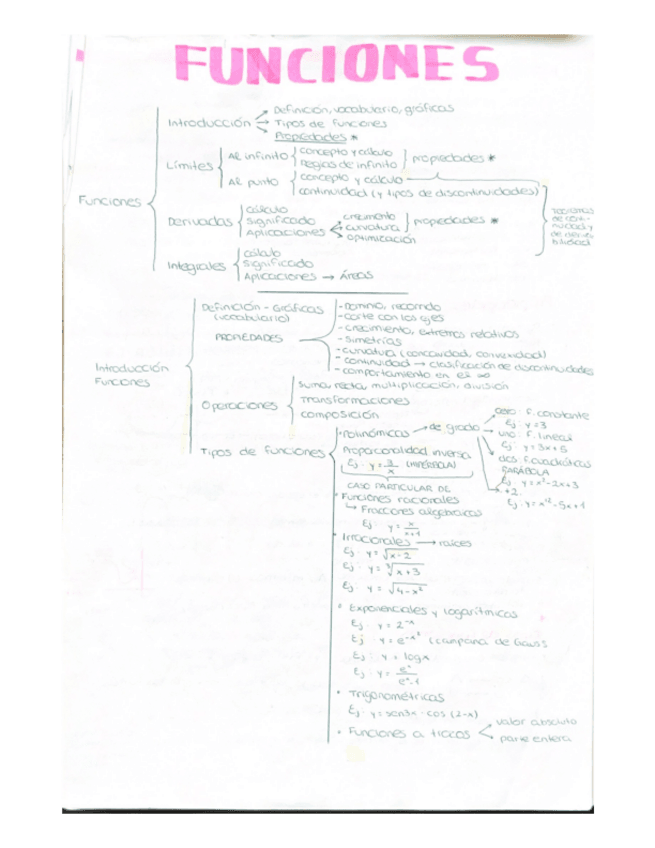 FUNCIONES
Funciones
Introducción → Definición, vocabulario, gráficas
→ Tipos de funciones
→ Propiedades *
Límites
Al infinito
concepto y cálculo
Reglas de infinito
propiedades *
Al punto
concepto y cálculo
continuidad (y tipos de discontinuidades)
Derivadas
cálculo
significado
Aplicaciones
crecimiento
curvatura
optimización
propiedades *
de conti-
nuidad y
de deriva-
bilidad
Integrales
cálculo
significado
Aplicaciones → Áreas
Introducción
Funciones
Definición - Gráficas
(vocabulario)
PROPIEDADES
- Dominio, recorrido
- corte con los ejes
- crecimiento, extremos relativos
- simetrías
- curvatura (concavidad, convexidad)
- continuidad → clasificación de discontinuidades
- comportamiento en el ∞
Operaciones
suma, resta, multiplicación, división
Transformaciones
composición
Tipos de funciones
• Polinómicas → de grado
cero: f. constante
Ej: y = 3
uno: f. lineal
Ej: y = 3x + 5
dos: f. cuadráticas
PARÁBOLA
Ej: y = x² - 2x + 3
+2
Proporcionalidad inversa
Ej: y = 3/x (HIPÉRBOLA)
CASO PARTICULAR DE
• Funciones racionales
↳ Fracciones algebraicas
Ej: y = x/(x+1)
• Irracionales → raíces
Ej: y = √(x-2)
Ej: y = ∛(x+3)
Ej: y = √(4-x²)
• Exponenciales y logarítmicas
Ej: y = 2⁻ˣ
Ej: y = e^(-x²) (campana de Gauss
Ej: y = log x
Ej: y = eˣ/(eˣ-1)
• Trigonométricas
Ej: y = sen3x · cos (2-x)
• Funciones a trozos
valor absoluto
parte entera